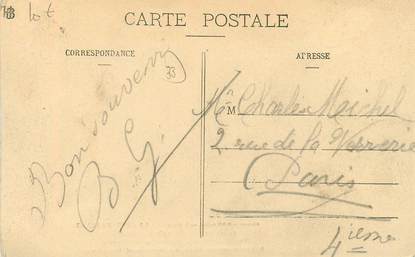 lot
CARTE POSTALE
CORRESPONDANCE
ADRESSE
33
Bon souvenir
B. G.
Mr M Charles Michel
2 rue de la Verrerie
Paris
4ieme